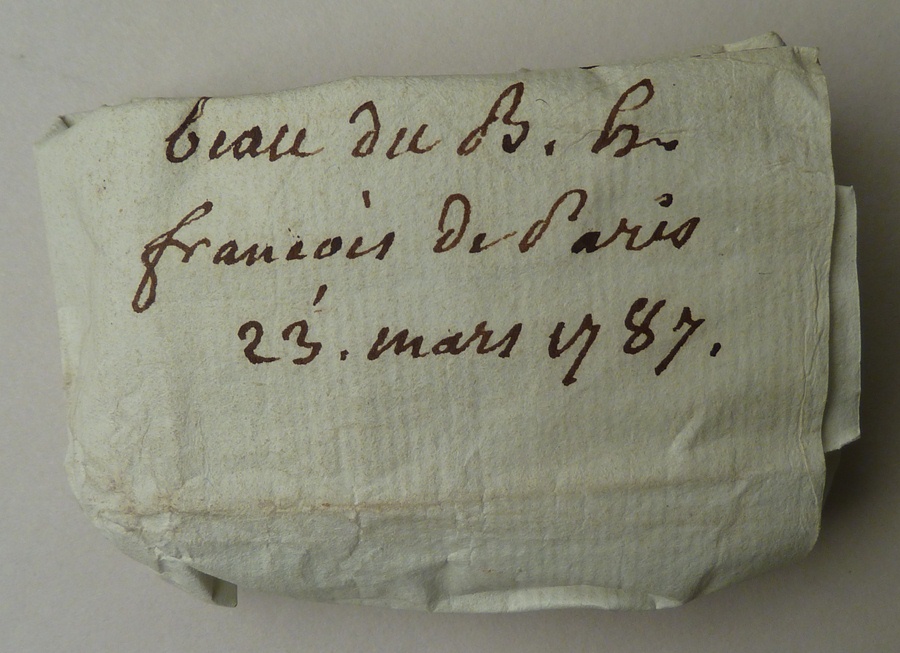 beau du B.
francois de Paris
23. mars 1787.